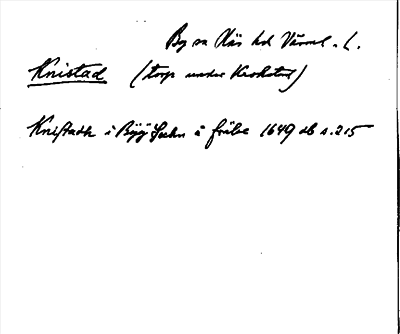 By sn Näs hd Värml. l.
Knistad (torp under Krokstad)
Knistadh i Byÿ Sochn å frälse 1649 Jb s. 215